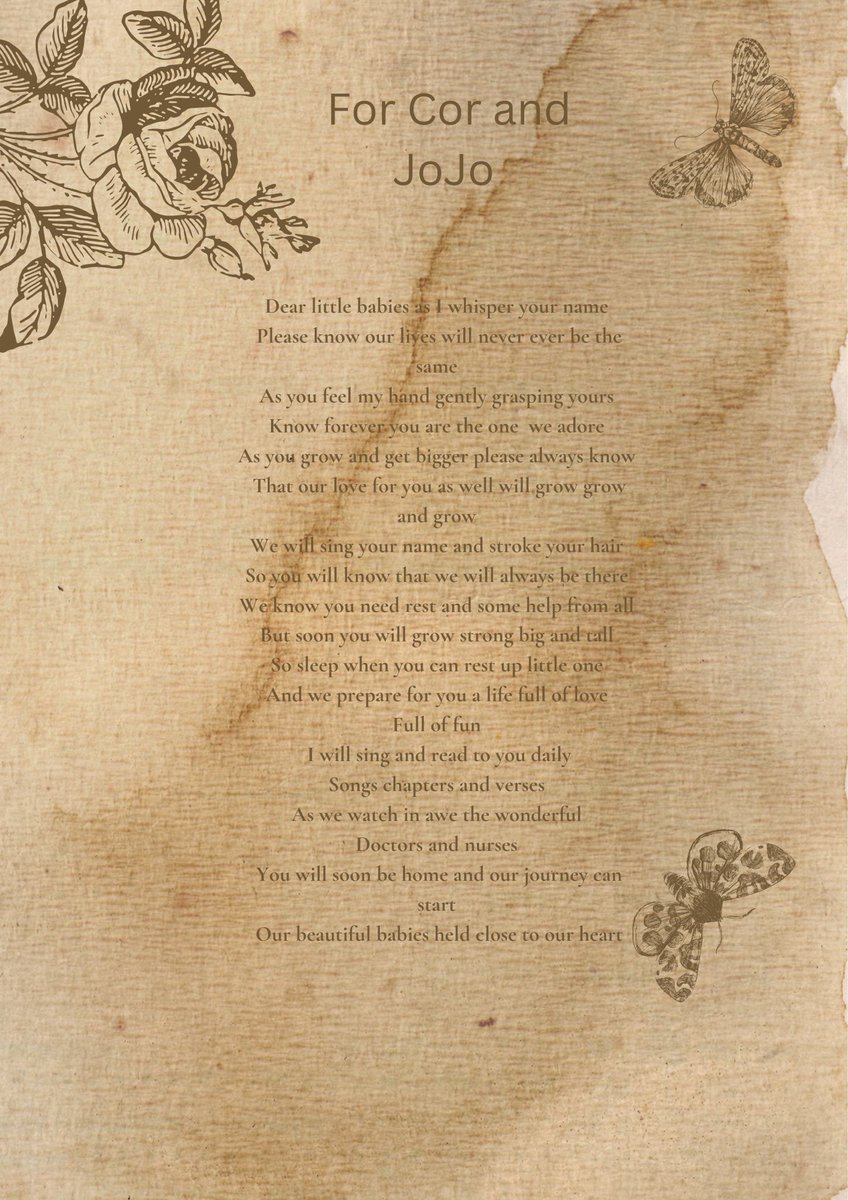 For Cor and
JoJo
Dear little babies as I whisper your name
Please know our lives will never ever be the
same
As you feel my hand gently grasping yours
Know forever you are the one  we adore
As you grow and get bigger please always know
That our love for you as well will grow grow
and grow
We will sing your name and stroke your hair
So you will know that we will always be there
We know you need rest and some help from all
But soon you will grow strong big and tall
So sleep when you can rest up little one
And we prepare for you a life full of love
Full of fun
I will sing and read to you daily
Songs chapters and verses
As we watch in awe the wonderful
Doctors and nurses
You will soon be home and our journey can
start
Our beautiful babies held close to our heart